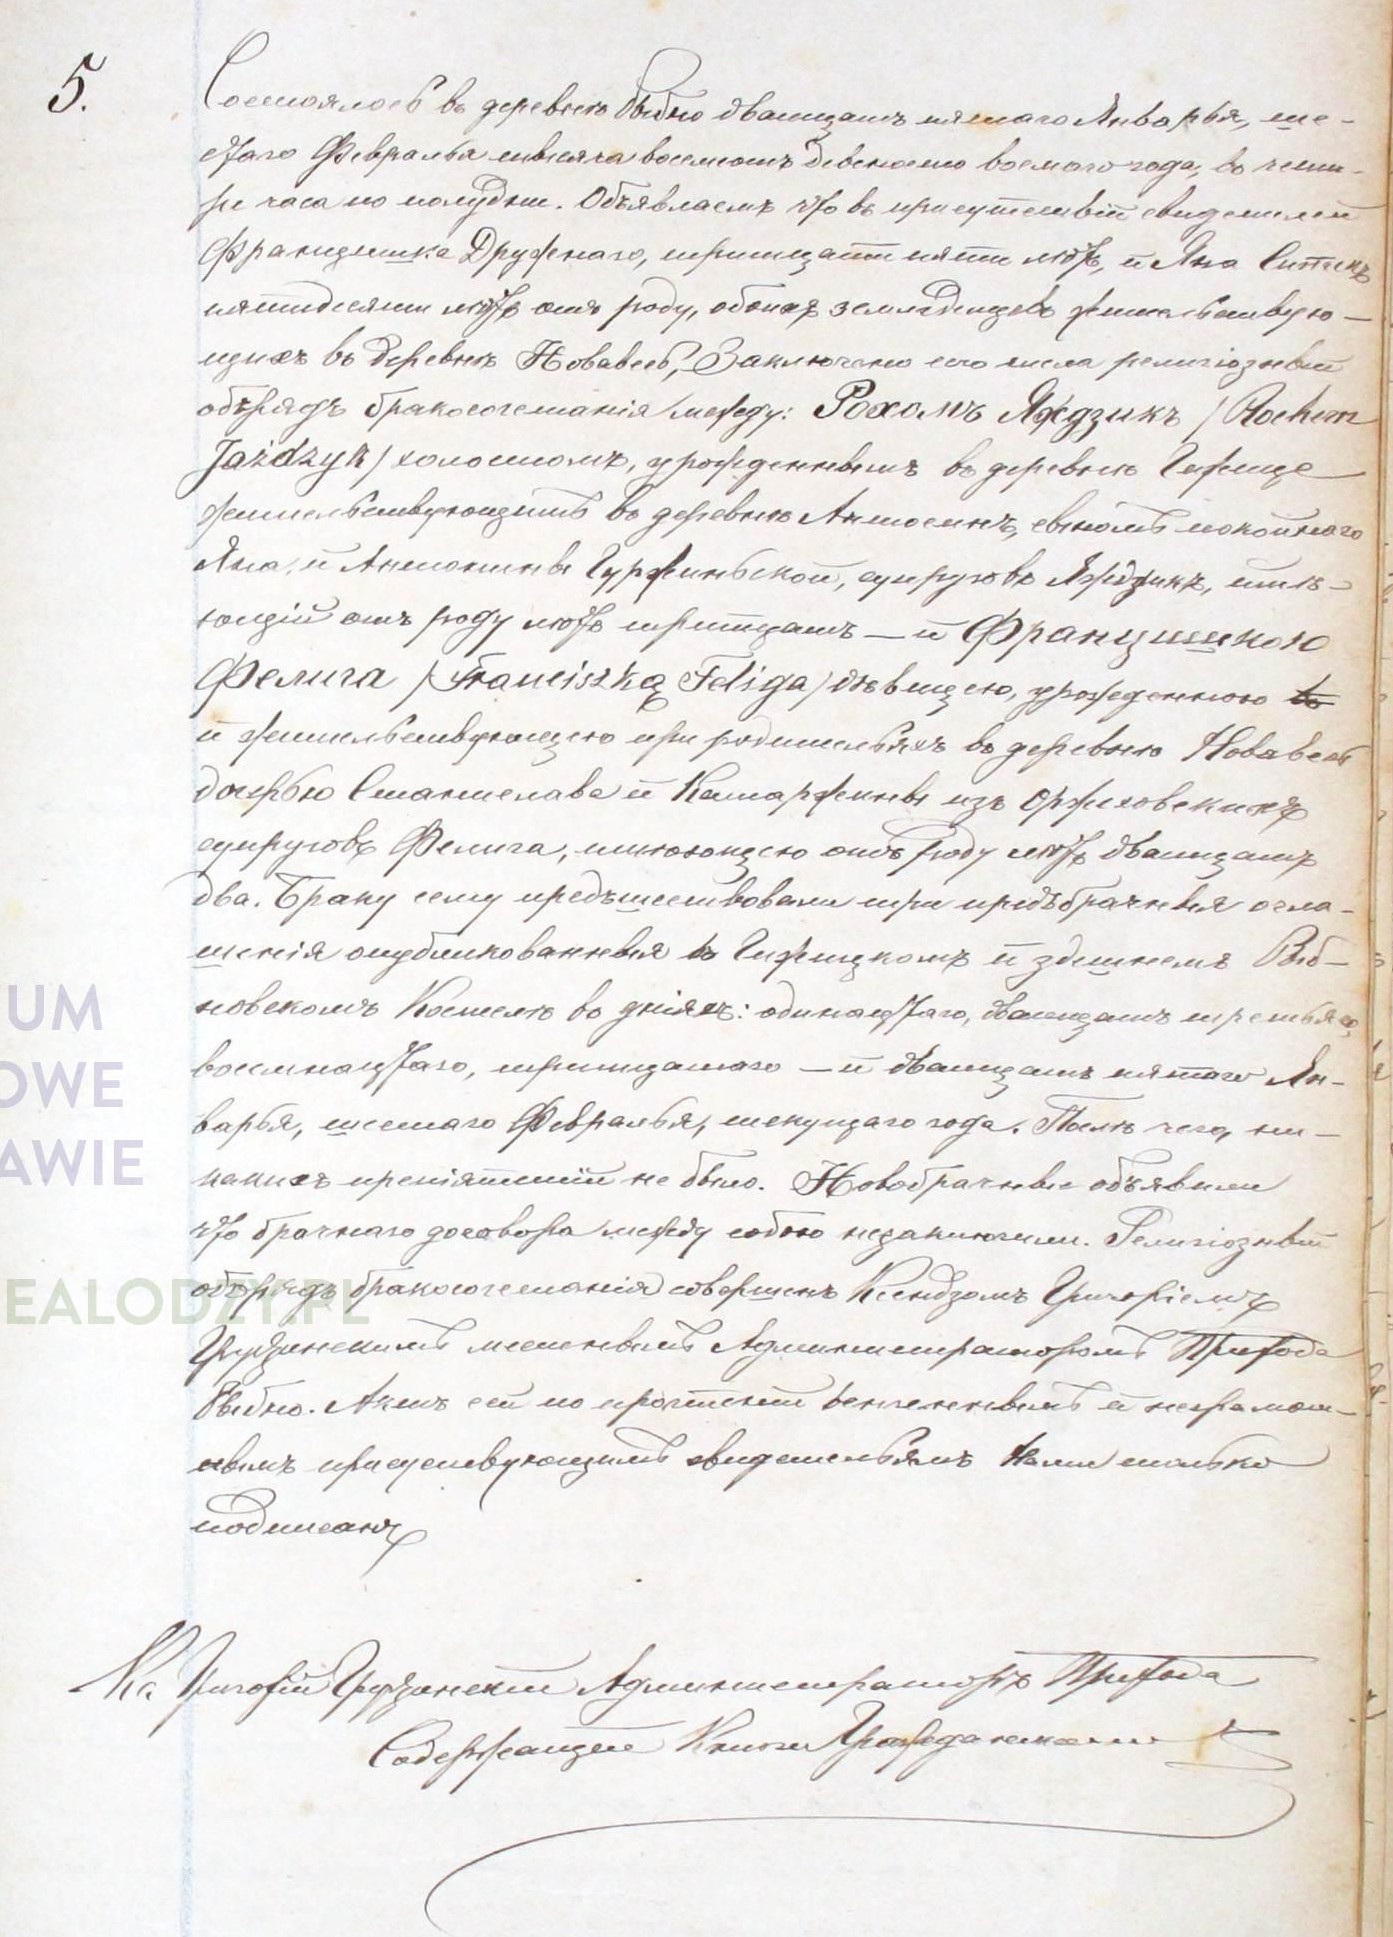 5.
Состоялось въ деревнѣ Выбно двадцать пятаго Января, ше-
стаго Февраля тысяча восемьсотъ девеносто восьмаго года, въ четы-
ре часа по полудни. Объявляемъ что въ присутствіи свидетелей
Францишка Дружнаго, тридцати пяти лѣтъ, и Яна
пятидесяти лѣтъ отъ роду, обоихъ земледельцевъ жительствую-
щихъ въ деревнѣ Нововесь, Заключено сего числа религіозный
обрядъ бракосочетанія между: Рохомъ Яждзикъ / Rochem
Jażdzyk / холостомъ, урожденнымъ въ деревнѣ Гижице
жительствующимъ въ деревнѣ Антосинъ, сыномъ покойнаго
Яна, и Антонины Гуржиньской, супруговъ Яждзикъ, имѣ-
ющій отъ роду лѣтъ тритцать — и Францишкою
Фелига / Franciszką Feliga / дѣвицею, урожденною въ
и жительствующею при родительяхъ въ деревнѣ Нововесь
дочерью Станислава и Катаржины изъ Оржеховскихъ
супруговъ Фелига, имеющею отъ роду лѣтъ двадцать
два. Браку сему предъшествовали три предъбрачныя огла-
шенія опубликованныя въ Гижицкомъ и здешнемъ Выб-
новскомъ Костелѣ въ дніяхъ: одинацтаго, двадцать третьяго,
восемнацтаго, тритцатаго — и двадцать пятаго Ян-
варья, шестаго Февралья, текущаго года. Послѣ чего, ни-
какихъ препіятствій не было. Новобрачные объявили
что брачнаго договора между собою незаключили. Религіозный
обѣрядъ бракосочетанія совершенъ Ксендзомъ Григоріемъ
местнымъ Администраторомъ Прихода
Выбно. Актъ сей по прочтеніи венченнымъ и неграмот-
нымъ присутствующимъ свидетельямъ Нами только
подписанъ
Кс. Григорій Администраторъ Прихода
Содержащій Книги Гражданскаго
UM
OWE
AWIE
EALODZY.PL